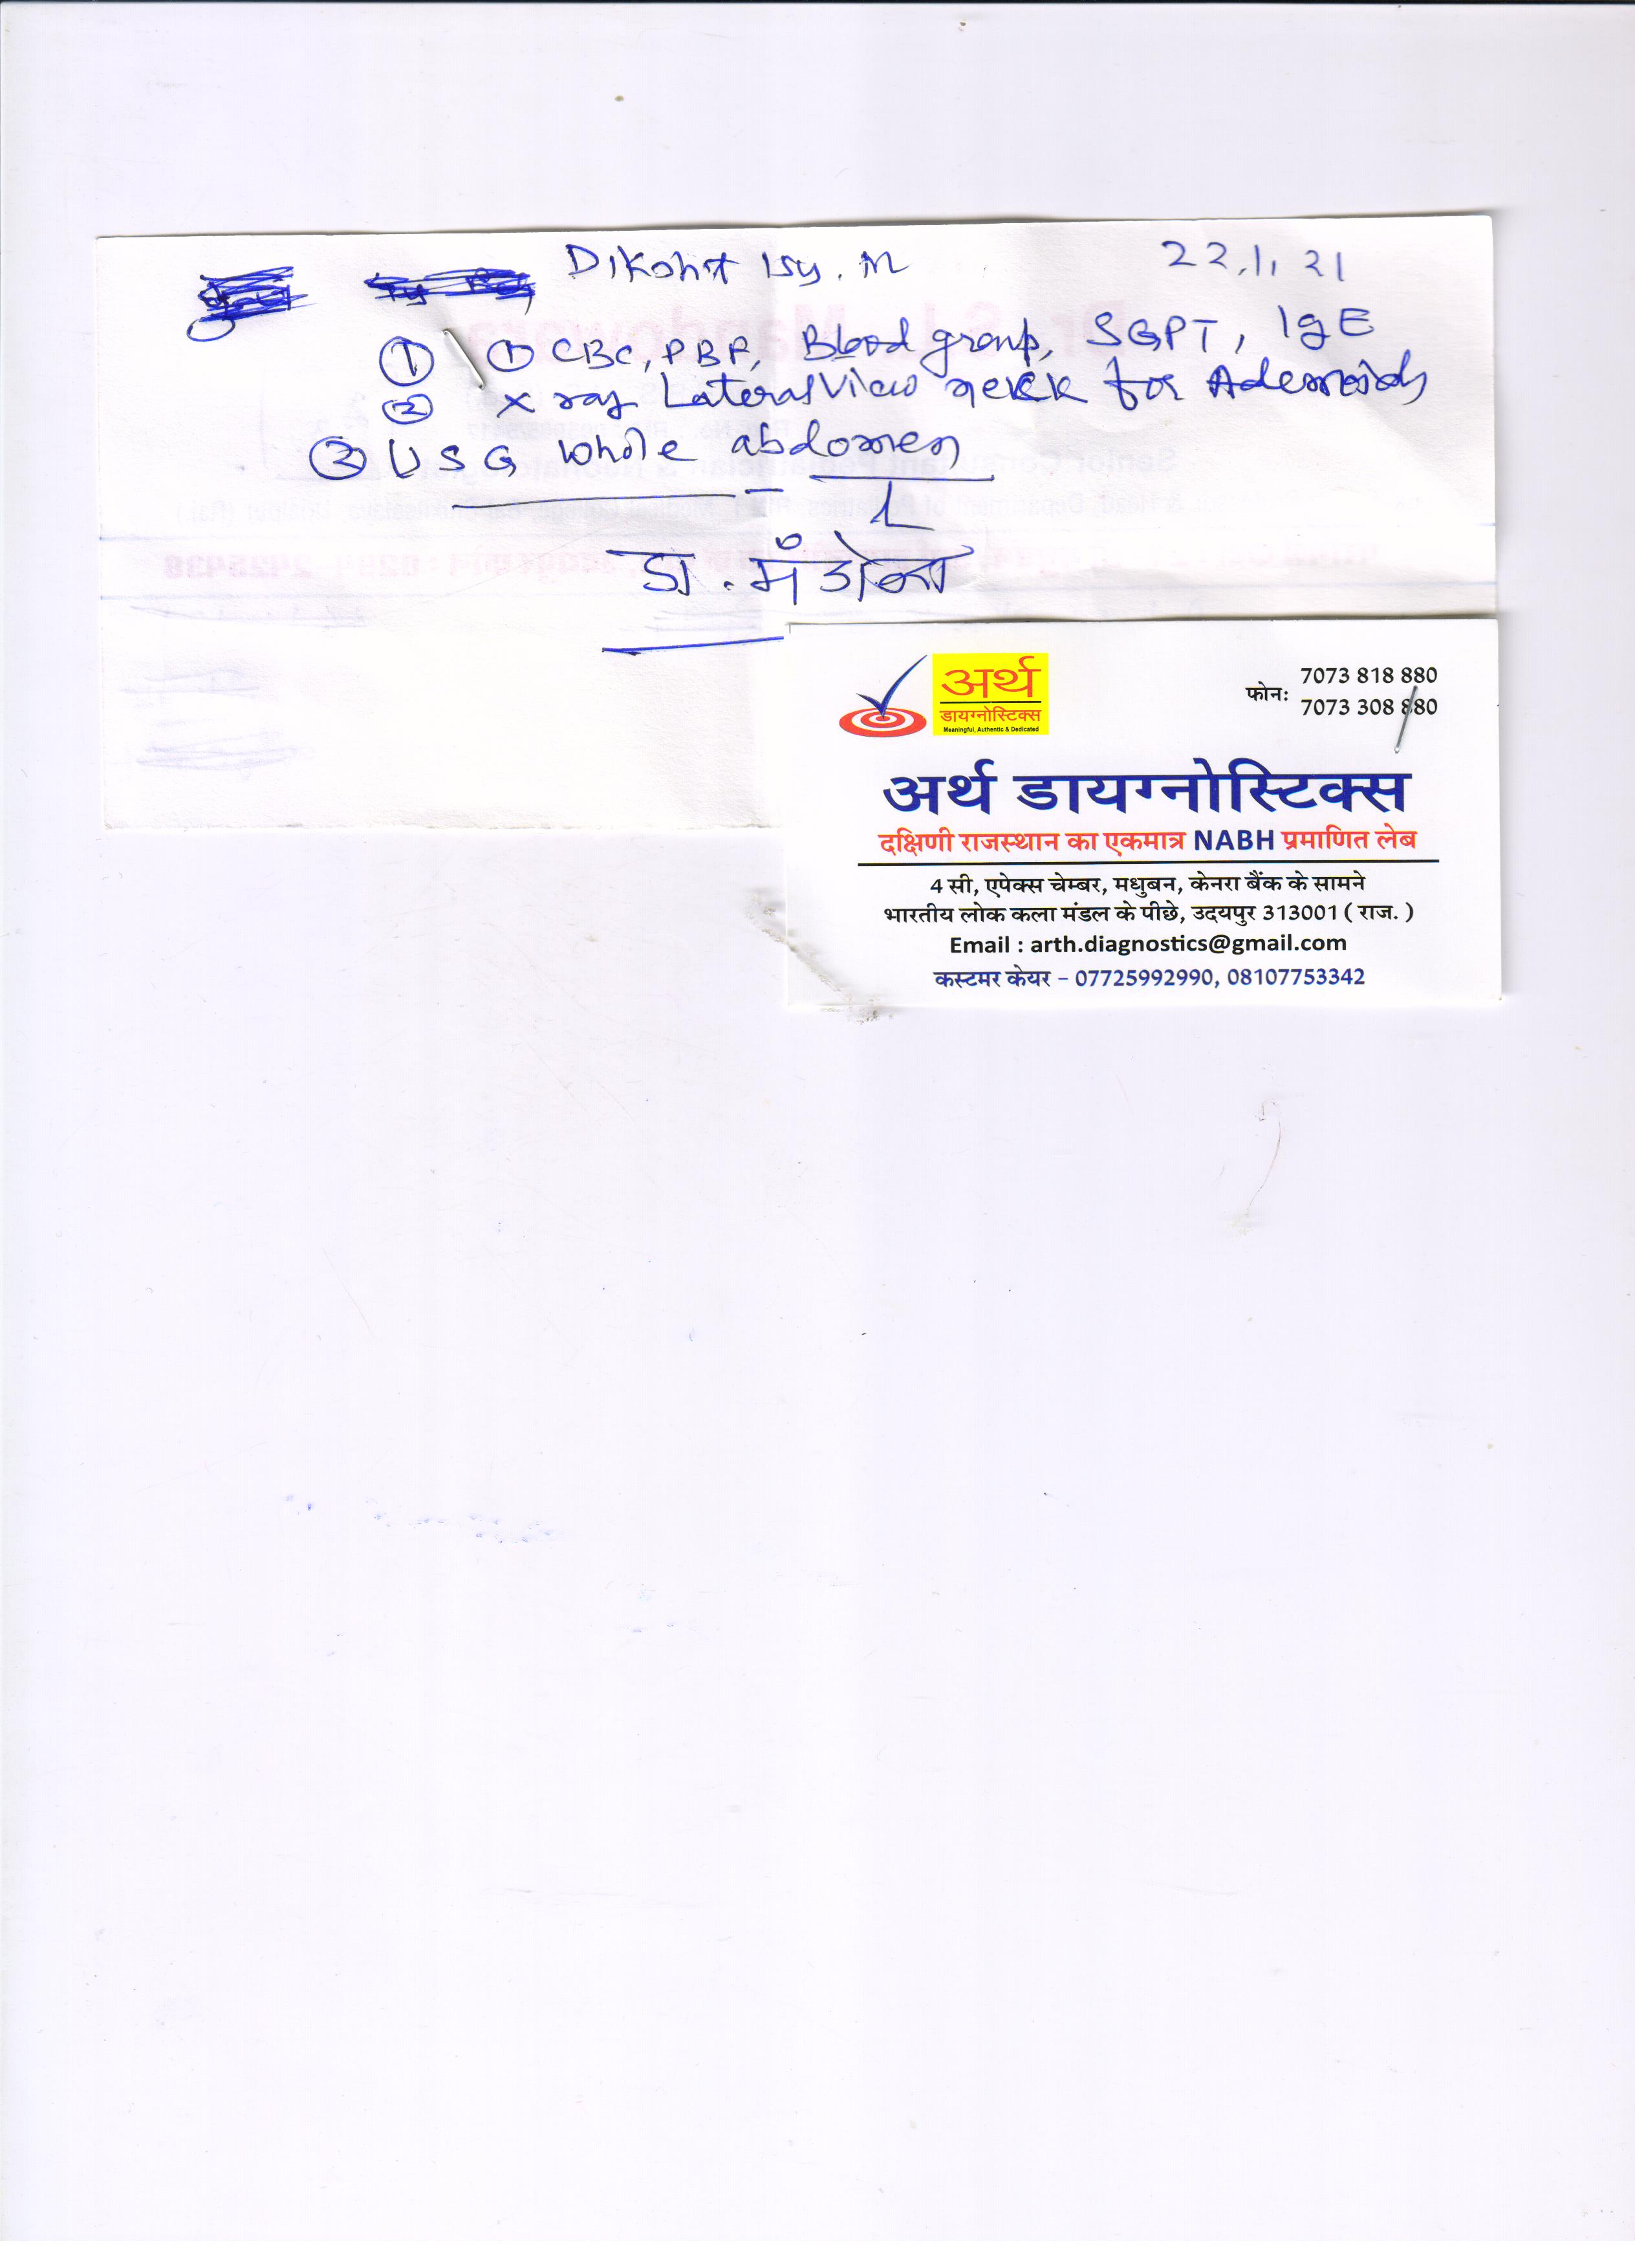 Dikshit 15y. M 22.1.21
① ① CBC, PBF, Blood group, SGPT, IgE
② X ray Lateral View neck for Adenoids
③ USG whole abdomen
डा.
अर्थ
डायग्नोस्टिक्स
Meaningful, Authentic & Dedicated
फोन: 7073 818 880
7073 308 880
अर्थ डायग्नोस्टिक्स
दक्षिणी राजस्थान का एकमात्र NABH प्रमाणित लेब
4 सी, एपेक्स चेम्बर, मधुबन, केनरा बैंक के सामने
भारतीय लोक कला मंडल के पीछे, उदयपुर 313001 ( राज. )
Email : arth.diagnostics@gmail.com
कस्टमर केयर - 07725992990, 08107753342